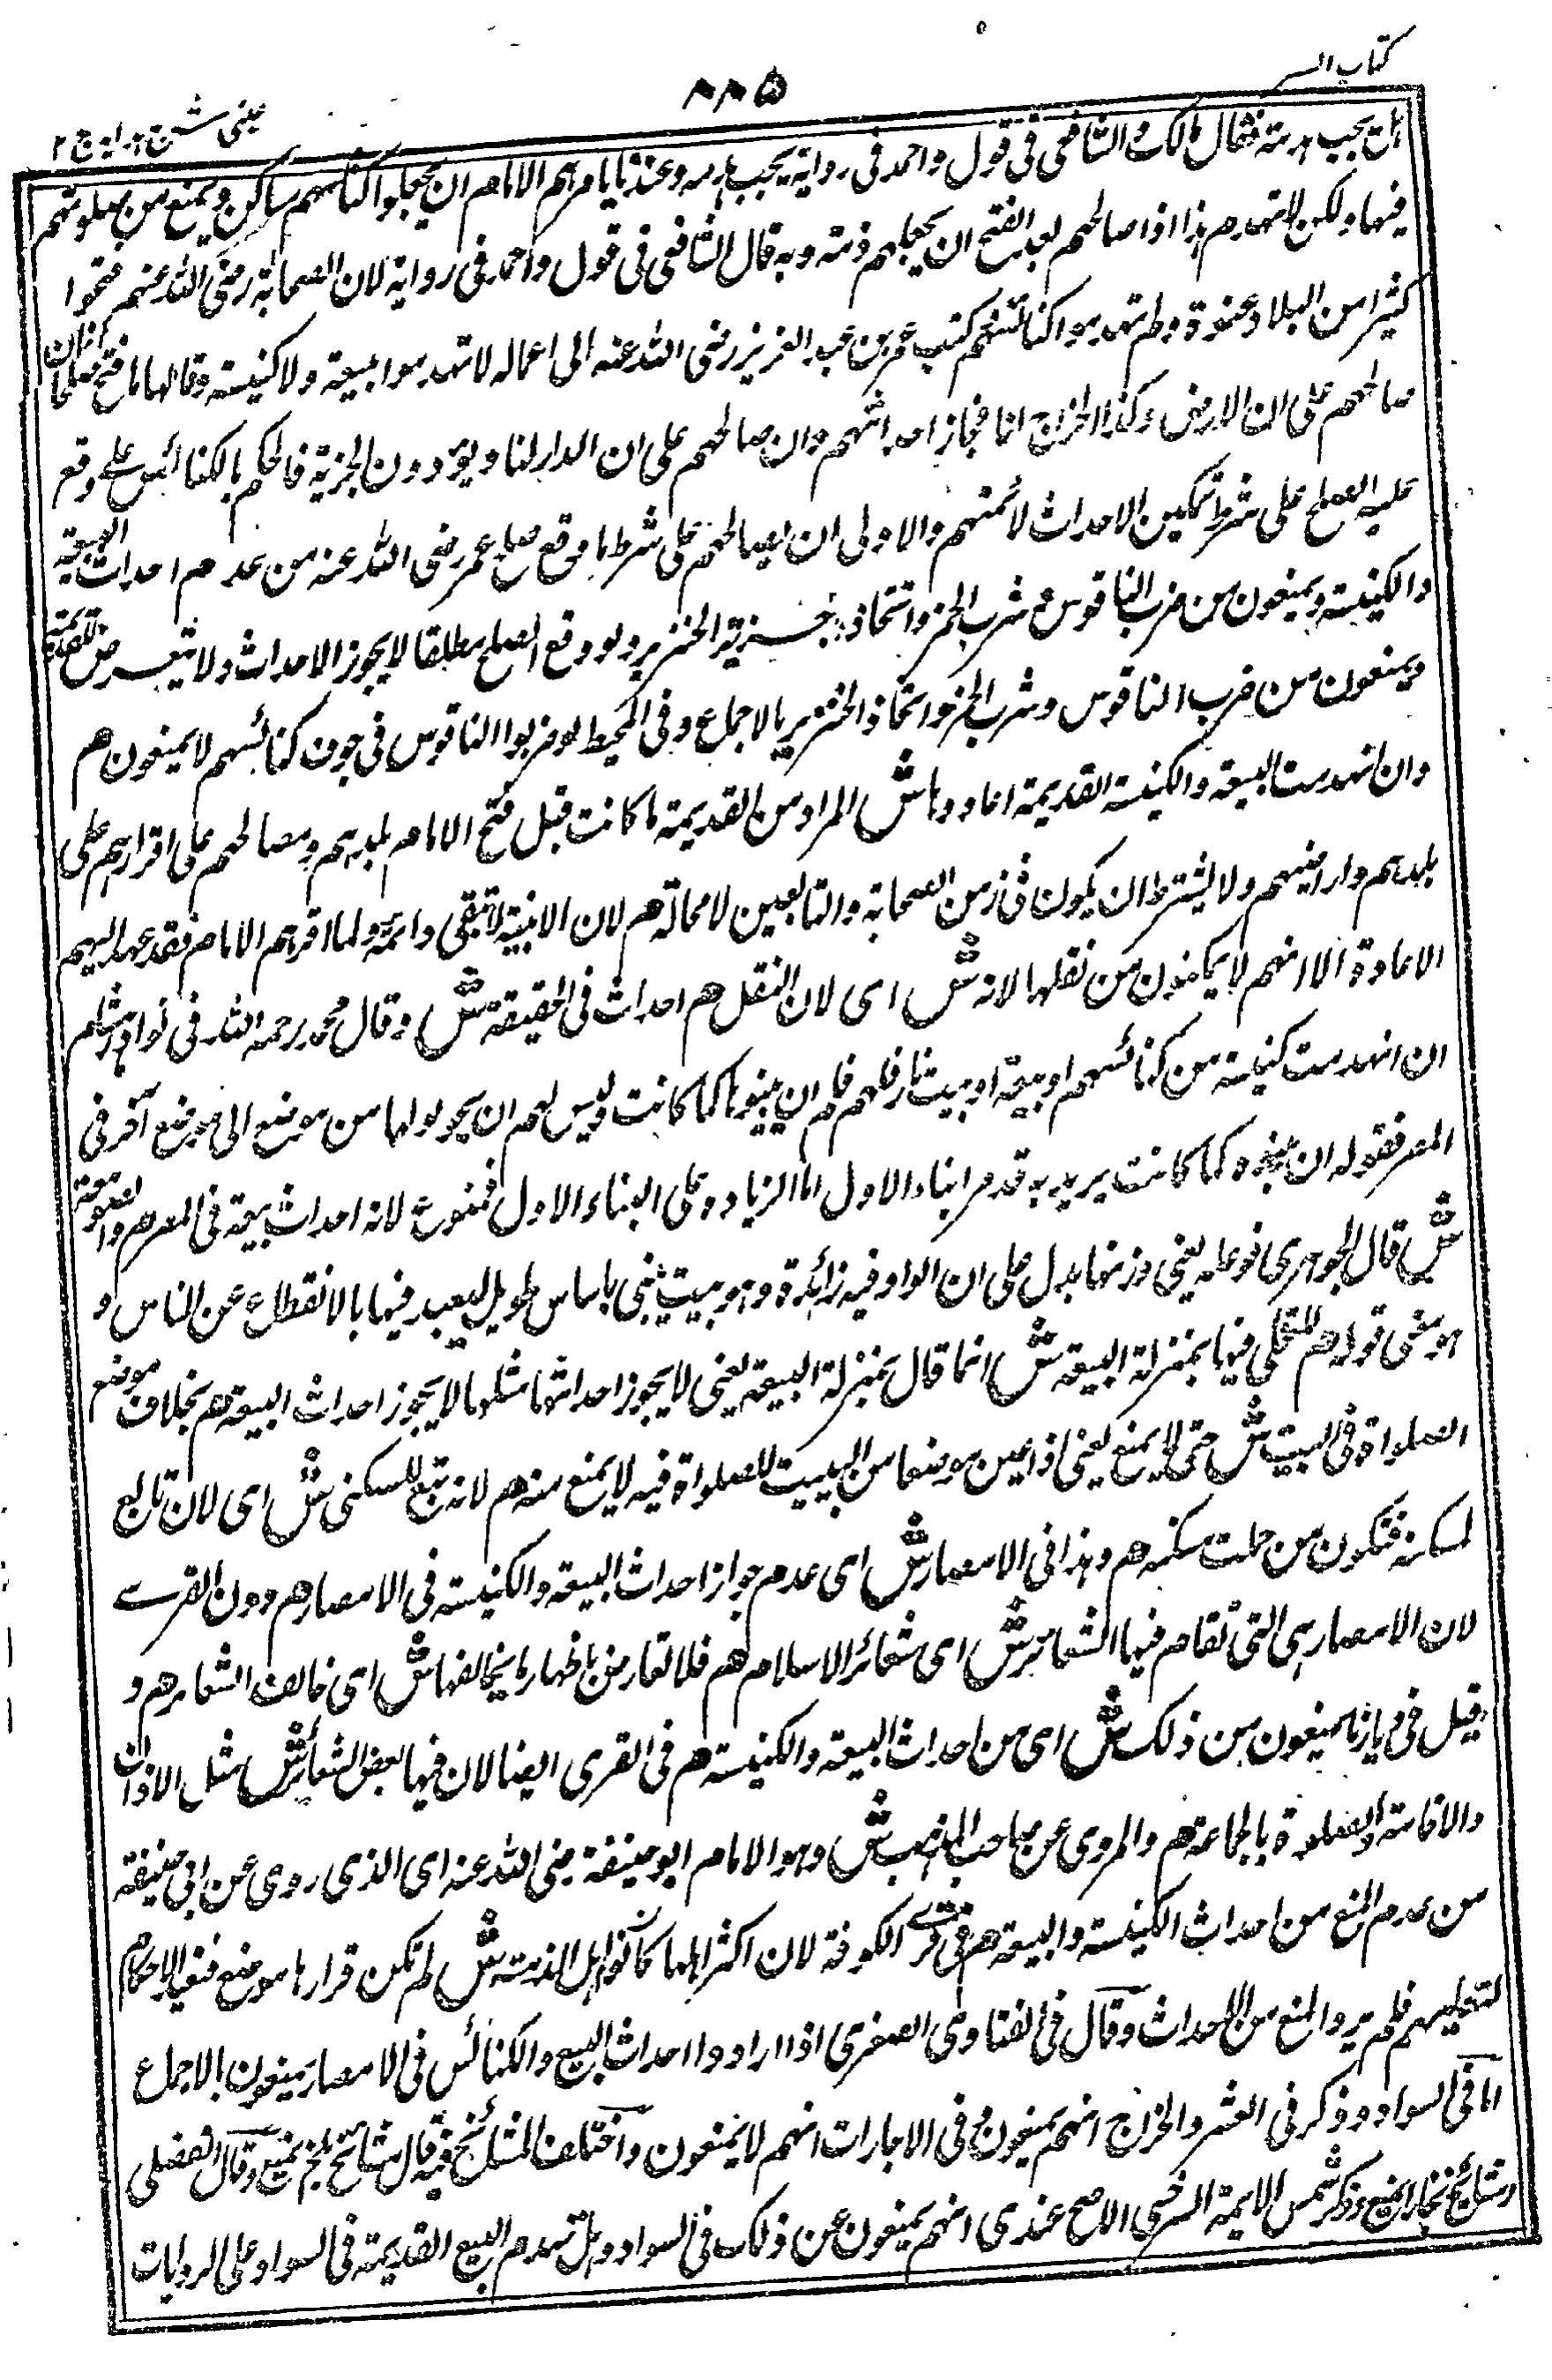 كتاب السير
٨٣٥
عينى شرح هدايه ج ٢
هل يجب هدمة فقال مالك والشافعي في قول واحمد في رواية يجب هدمه وعندنا يامرهم الامام ان يجعلوا كنائسهم مساكن ويمنع من صلوتهم
فيها ولكن لا تهدم هذا اذا صالحهم بعد الفتح ان يجعلهم ذمة وبه قال الشافعي في قول واحمد في رواية لان الصحابة رضي الله عنهم فتحوا
كثيرا من البلاد عنوة ولم تهدموا كنائسهم كتب عمر بن عبد العزيز رضى الله عنه الى اعماله لا تهدموا بيعة ولا كنيسة وقالها ما فتح صلحا فان
صالحهم على ان الارض وكذا الخراج لنا فجاز احداثهم وان صالحهم على ان الدار لنا ويؤدون الجزية فالحكم بالكنائس على ما وقع
عليه الصلح على شرط تمكين الاحداث لا نمنعهم والاولى ان يصالحهم على شرط ما وقع صلح عمر رضى الله عنه من عدم احداث البيعة
والكنيسة ويمنعون من ضرب الناقوس وشرب الخمر واتخاذ الخنزير ولو وقع الصلح مطلقا لا يجوز الاحداث ولا يتعرض للقديمة
ويمنعون من ضرب الناقوس وشرب الخمر واتخاذ الخنزير بالاجماع وفى المحيط لو ضربوا الناقوس فى جوف كنائسهم لا يمنعون هم
وان انهدمت البيعة والكنيسة القديمة اعادوها ش المراد من القديمة ما كانت قبل فتح الامام بلدهم ومصالحهم على اقرارهم على
بلدهم واراضيهم ولا يشترط ان يكون فى زمن الصحابة والتابعين لا محالة هم لان الابنية لا تبقى دائمة ولما اقرهم الامام فقد عهد اليهم
الاعادة الا انهم لا يمكنون من نقلها لانه ش اى لان النقل هم احداث فى الحقيقة ش وقال محمد رحمه الله فى نوادر هشام
ان انهدمت كنيسة من كنائسهم او بيعة او بيت نار فلهم ان يبنوها كما كانت وليس لهم ان يحولوها من موضع الى موضع آخر فى
المصر فقوله ان يبنوه كما كانت يريد به قدر البناء الاول اما الزيادة على البناء الاول فممنوع لانه احداث بيعة فى المصر هم والصومعة
ش قال الجوهرى فوعلة يعنى وزنها يدل على ان الواو فيه زائدة وهو بيت يبنى باساس طويل ليعبد فيها بالانقطاع عن الناس و
هو معنى قوله هم للتخلى فيها بمنزلة البيعة ش انما قال بمنزلة البيعة يعنى لا يجوز احداثها مثلها لا يجوز احداث البيعة هم بخلاف موضع
الصلواة فى البيت ش حتى لا يمنع يعنى اذا عين موضعا من البيت للصلواة فيه لا يمنع منه هم لانه تبع للسكنى ش اى لان تابع
لمسكنه فتكون من جملة سكنه هم وهذا فى الامصار ش اى عدم جواز احداث البيعة والكنيسة فى الامصار هم دون القرى
لان الامصار هى التى تقام فيها الشعائر ش اى شعائر الاسلام هم فلا تعارض باظهار ما يخالفها ش اى خالف الشعائر هم و
قيل فى ديارنا يمنعون من ذلك ش اى من احداث البيعة والكنيسة هم فى القرى ايضا لان فيها بعض الشعائر ش مثل الاذان
والاقامة والصلوة بالجماعة هم والمروى عن صاحب المذهب ش وهو الامام ابو حنيفة رضى الله عنه اى الذى روى عن ابى حنيفة
من عدم المنع من احداث الكنيسة والبيعة هم فى قرى الكوفة لان اكثر اهلها كانوا اهل الذمة ش لم تكن قرارها موضع تنفيذ الاحكام
لتغليبهم فلم يروا المنع من الاحداث وقال فى الفتاوى الصغرى اذا ارادوا احداث البيع والكنائس فى الامصار يمنعون بالاجماع
اما فى السواد وذكر فى العشر والخراج انهم يمنعون وفى الاجارات انهم لا يمنعون واختلف المشائخ فيه قال مشائخ بلخ يمنع وقال الفضلى
ومشائخ بخارا لا يمنع وذكر شمس الايمة السرخسى الاصح عندى انهم يمنعون عن ذلك فى السواد وهل تهدم البيع القديمة فى السواد على الروايات